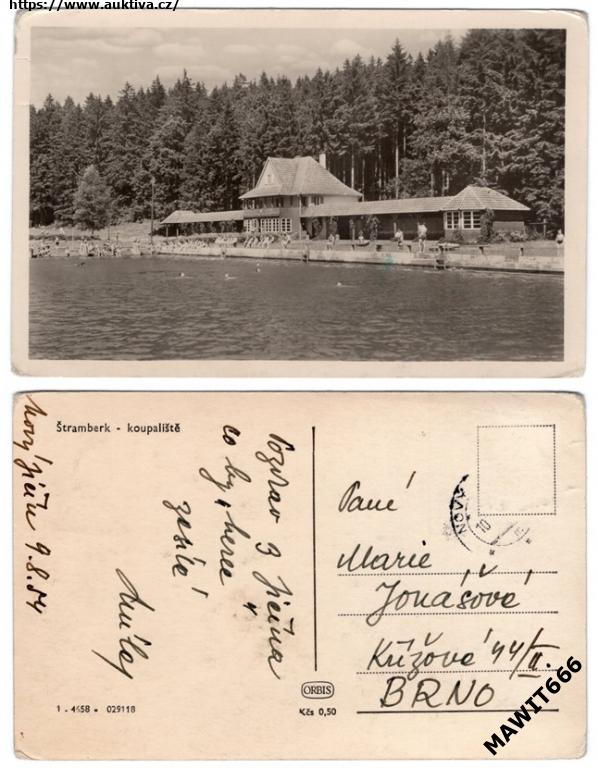 https://www.auktiva.cz/
Štramberk - koupaliště
Nový Jičín 9.8.54
Pozdrav z Jičína
co by „herec“
zasílá
Paní
Marie
Jonášová
Křížová 44/II.
BRNO
NOVÝ
10
1 - 4658 - 029118
ORBIS
Kčs 0,50
MAWIT666